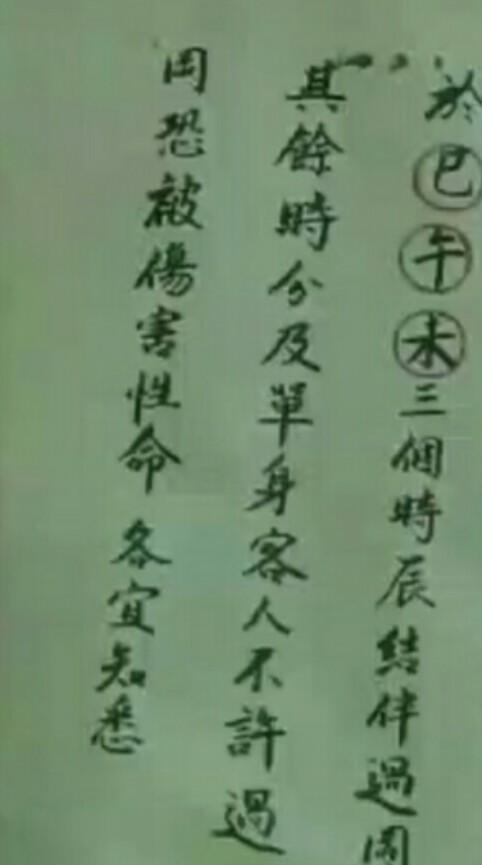 於巳午未三個時辰結伴過岡
其餘時分及單身客人不許過
岡恐被傷害性命各宜知悉